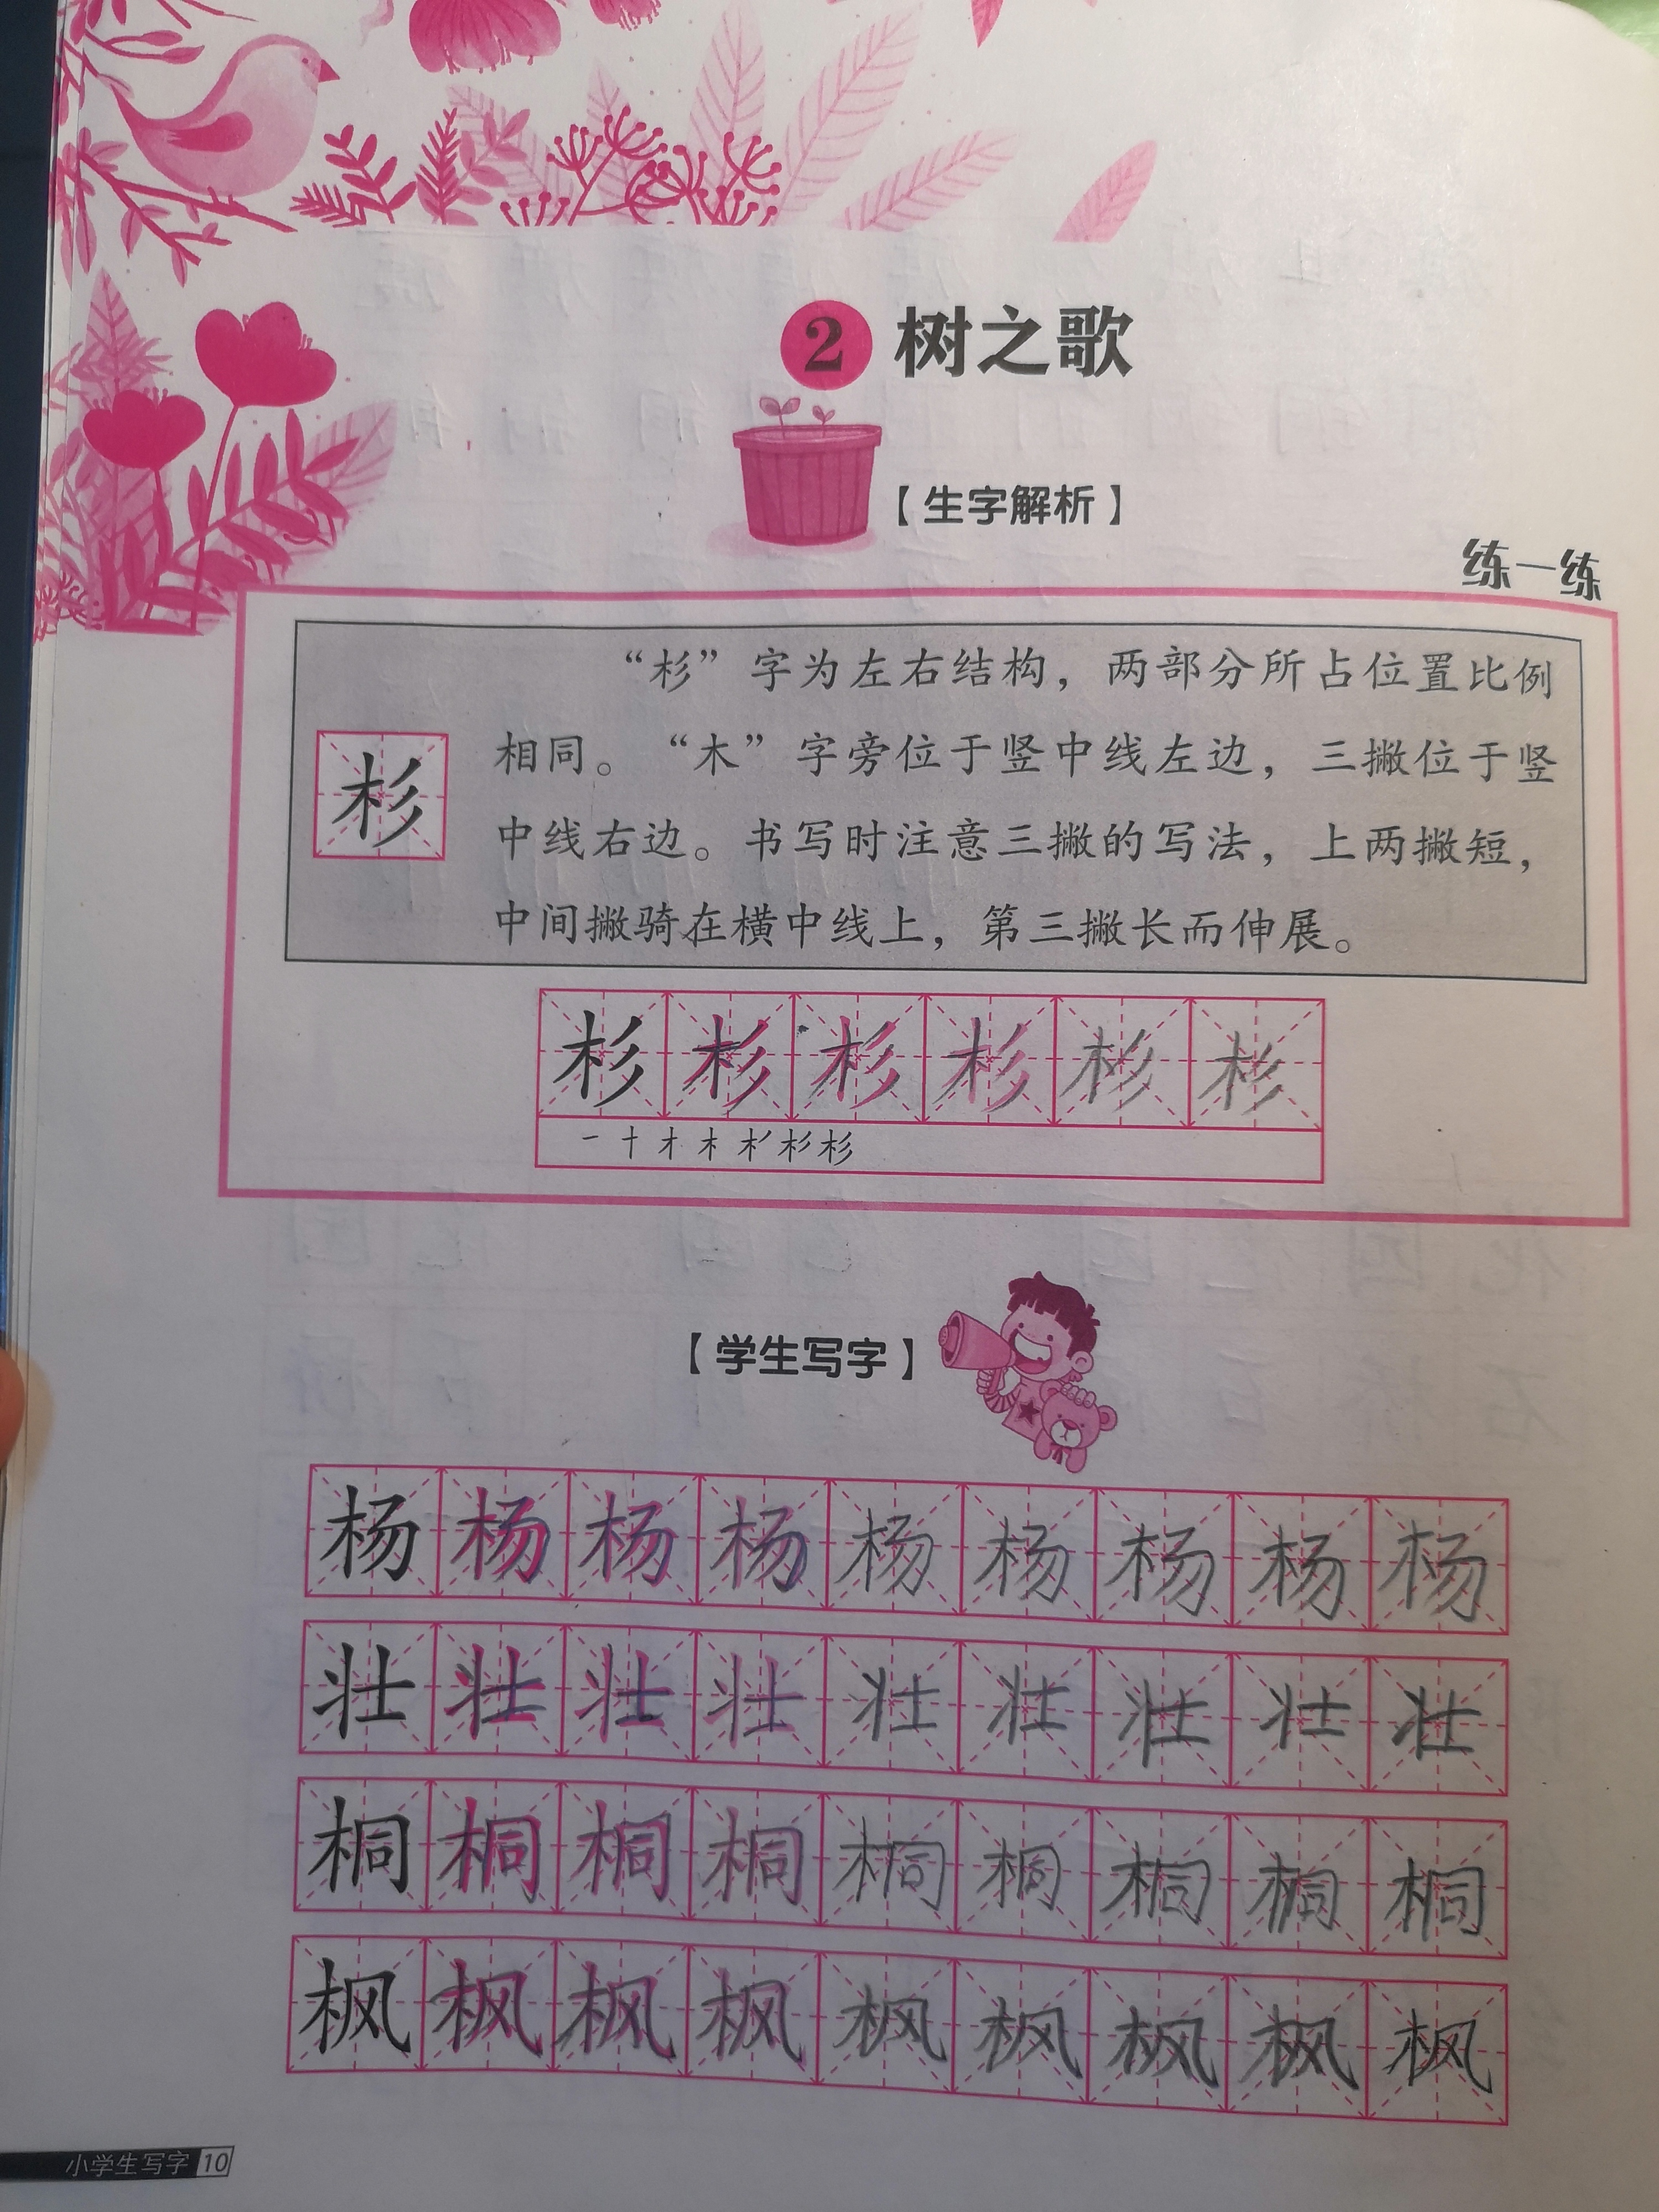 2 树之歌
【生字解析】
练一练
“杉”字为左右结构，两部分所占位置比例
相同。“木”字旁位于竖中线左边，三撇位于竖
中线右边。书写时注意三撇的写法，上两撇短，
中间撇骑在横中线上，第三撇长而伸展。
杉
杉杉杉杉杉杉
一十才木杉杉
【学生写字】
杨杨杨杨杨杨杨杨杨
壮壮壮壮壮壮壮壮壮
桐桐桐桐桐桐桐桐桐
枫枫枫枫枫枫枫枫枫
小学生写字 10